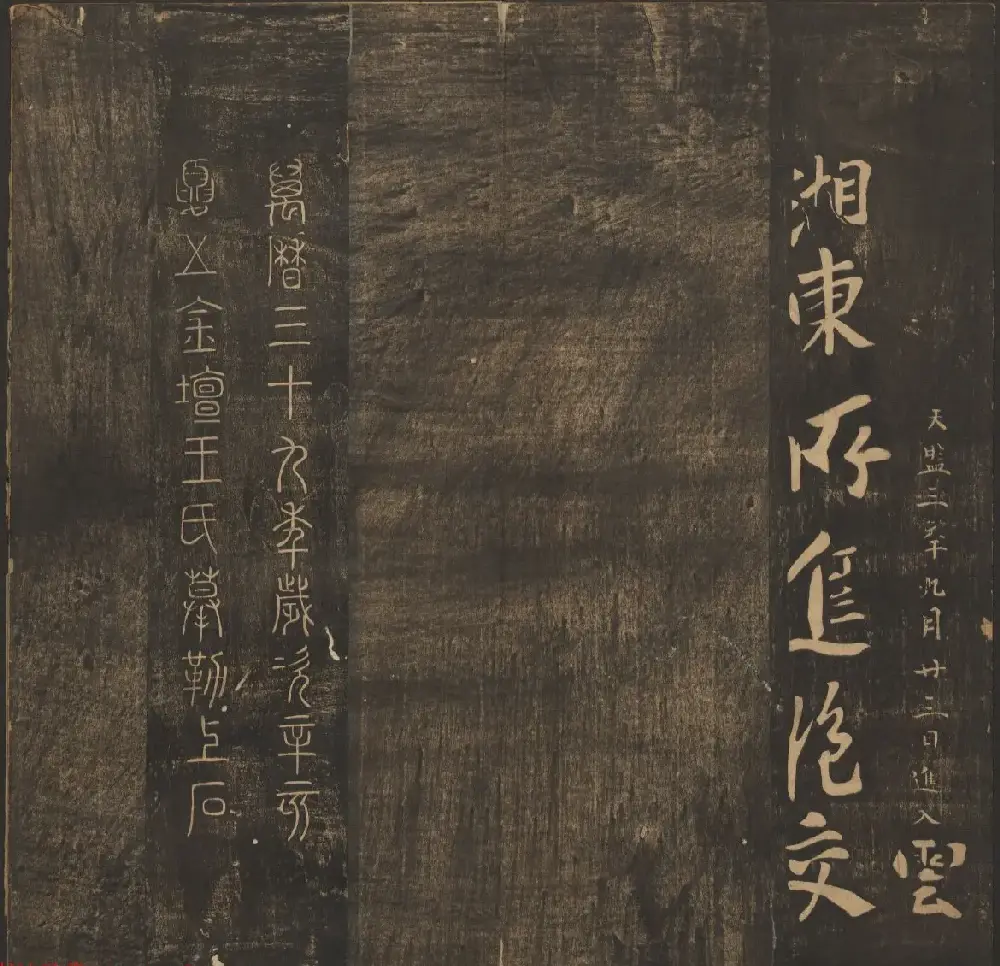 天監三年九月廿三日進入
雲
湘東所進交
萬曆三十九季歲次辛亥
夏五金壇王氏摹勒上石